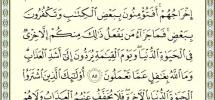 إِخْرَاجُهُمْ أَفَتُؤْمِنُونَ بِبَعْضِ الْكِتَابِ وَتَكْفُرُونَ
بِبَعْضٍ فَمَا جَزَاءُ مَن يَفْعَلُ ذَٰلِكَ مِنكُمْ إِلَّا خِزْيٌ
فِي الْحَيَوٰةِ الدُّنْيَا وَيَوْمَ الْقِيَٰمَةِ يُرَدُّونَ إِلَىٰ أَشَدِّ الْعَذَابِ
وَمَا اللَّهُ بِغَٰفِلٍ عَمَّا تَعْمَلُونَ ٨٥ أُولَٰئِكَ الَّذِينَ اشْتَرَوُا
الْحَيَوٰةَ الدُّنْيَا بِالْآخِرَةِ فَلَا يُخَفَّفُ عَنْهُمُ الْعَذَابُ وَلَا هُمْ